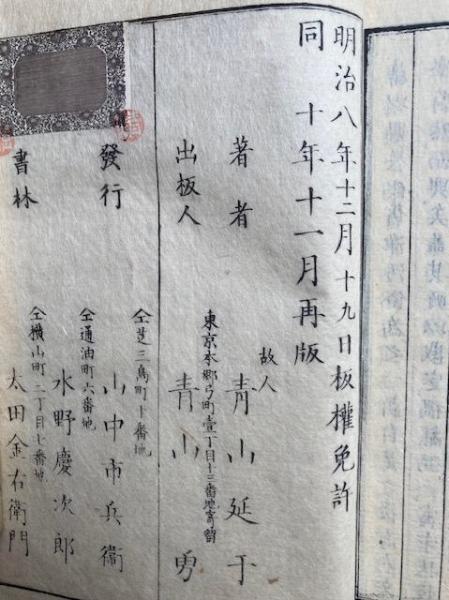 明治八年十二月十九日板權免許
同 十年十一月再版
著者 故人 青山延于
出板人 東京本郷弓町壹丁目十三番地寄留 青山勇
發行 仝芝三島町十番地 山中市兵衞
仝通油町六番地 水野慶次郎
書林 仝横山町二丁目七番地 太田金右衞門